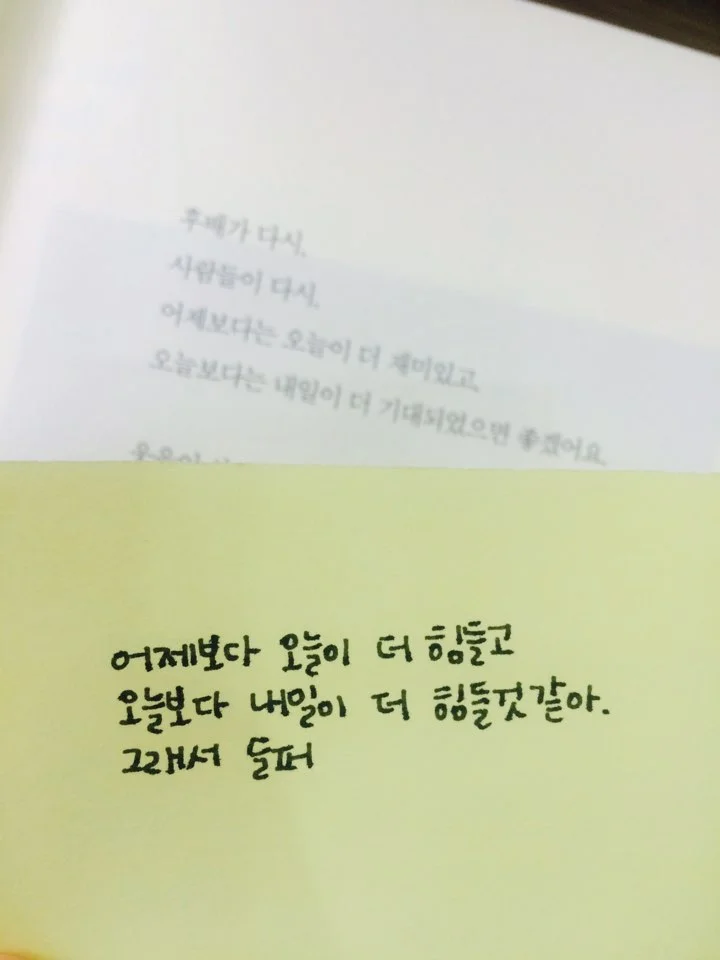 후배가 다시,
사람들이 다시,
어제보다는 오늘이 더 재미있고,
오늘보다는 내일이 더 기대되었으면 좋겠어요.
어제보다 오늘이 더 힘들고
오늘보다 내일이 더 힘들것 같아.
그래서 슬퍼